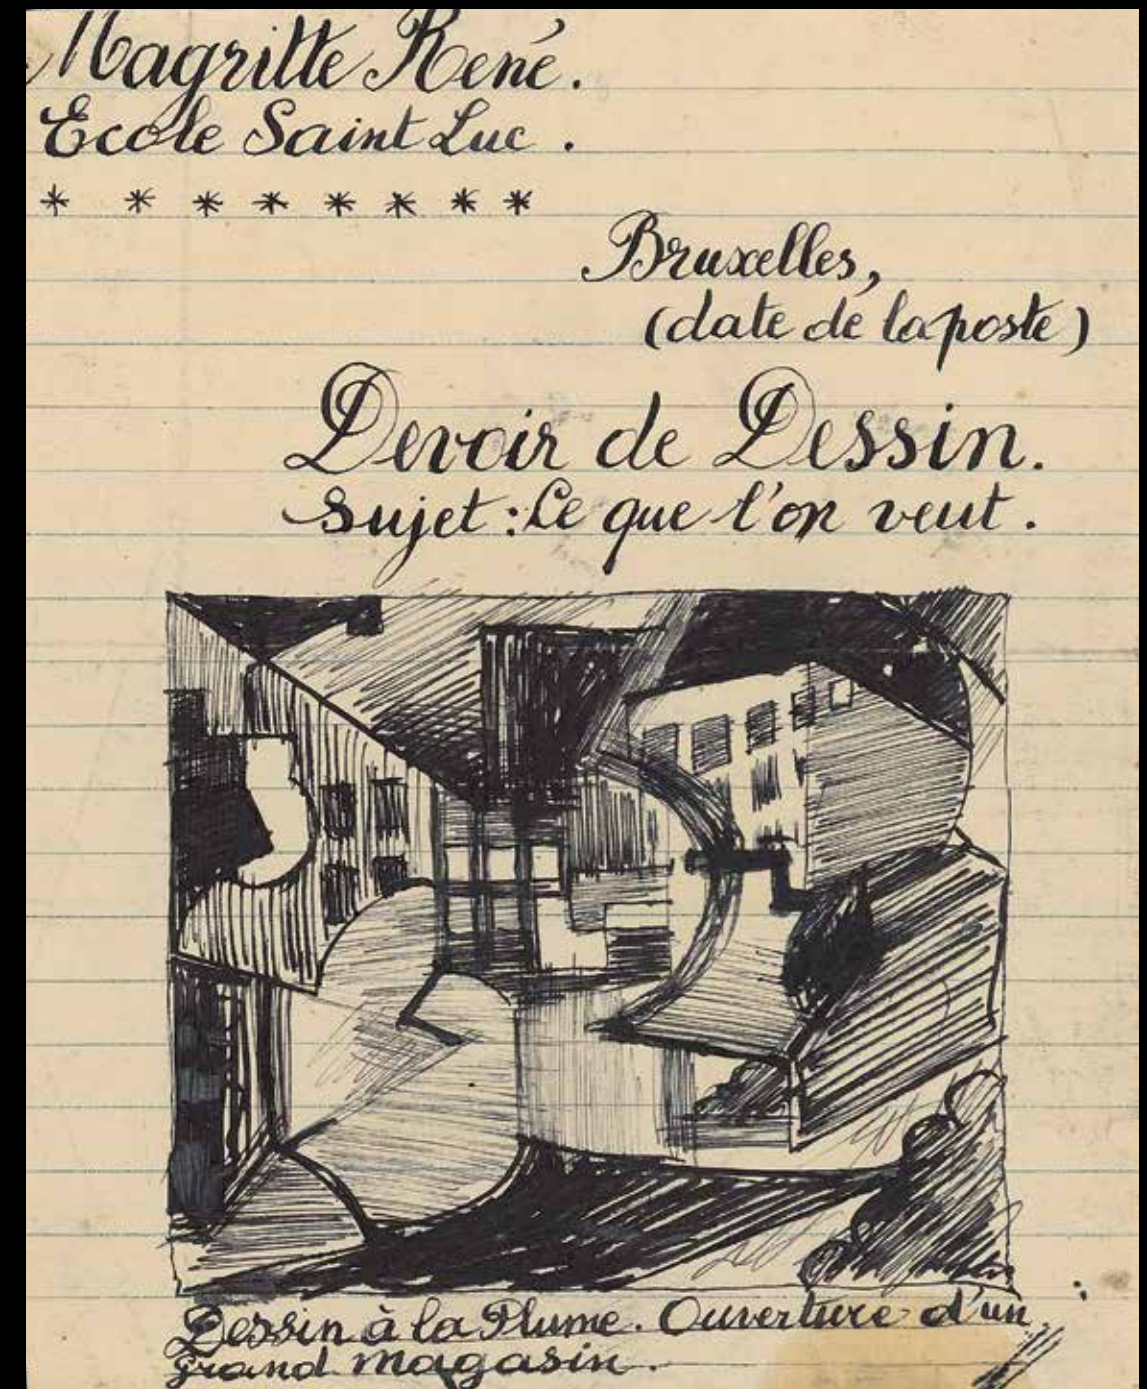 Magritte René.
Ecole Saint Luc.
* * * * * * * *
Bruxelles,
(date de la poste)
Devoir de Dessin.
Sujet: Ce que l'on veut.
Dessin à la Plume. Ouverture d'un
grand magasin.